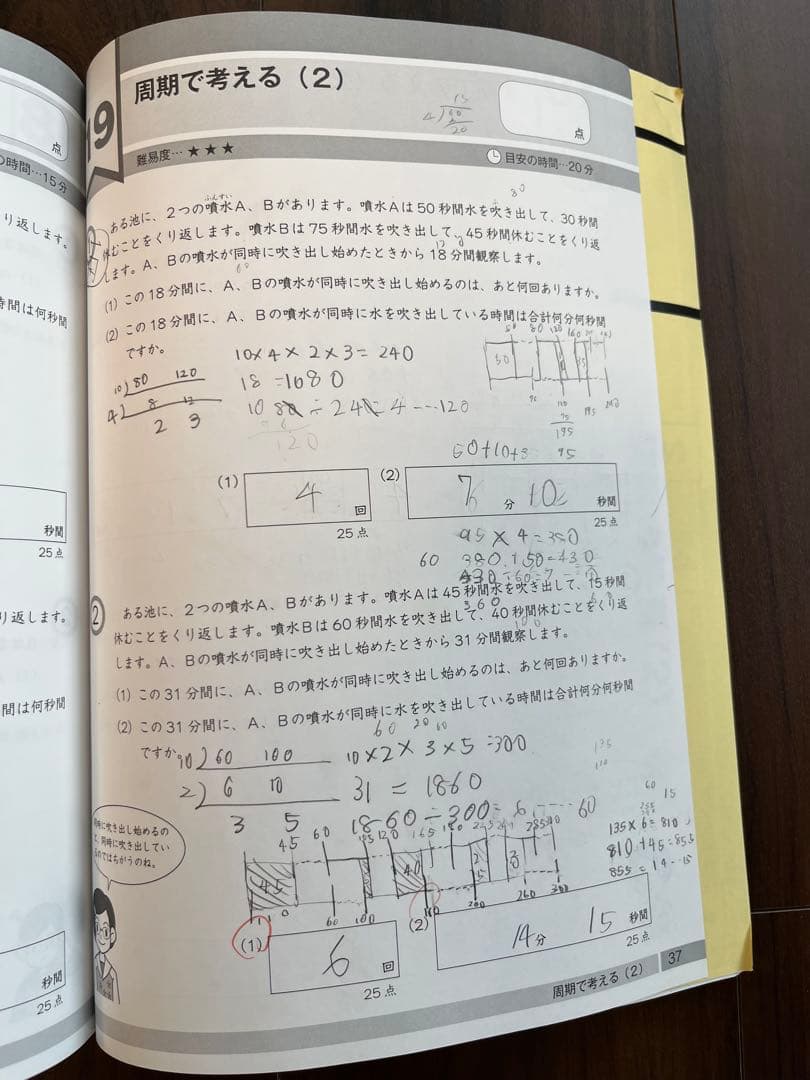 19
周期で考える（2）
点
難易度…★★★
目安の時間…20分
ふんすい
ある池に、2つの噴水A、Bがあります。噴水Aは50秒間水を吹き出して、30秒間
休むことをくり返します。噴水Bは75秒間水を吹き出して、45秒間休むことをくり返
します。A、Bの噴水が同時に吹き出し始めたときから18分間観察します。
(1) この18分間に、A、Bの噴水が同時に吹き出し始めるのは、あと何回ありますか。
(2) この18分間に、A、Bの噴水が同時に水を吹き出している時間は合計何分何秒間
ですか。
10×4×2×3=240
10)80 120
18=1080
4) 8 12
2 3
1080÷240=4…120
(1) 4 回
25点
(2) 7 分 10 秒間
25点
95×4=380
380+50=430
2 ある池に、2つの噴水A、Bがあります。噴水Aは45秒間水を吹き出して、15秒間
休むことをくり返します。噴水Bは60秒間水を吹き出して、40秒間休むことをくり返
します。A、Bの噴水が同時に吹き出し始めたときから31分間観察します。
(1) この31分間に、A、Bの噴水が同時に吹き出し始めるのは、あと何回ありますか。
(2) この31分間に、A、Bの噴水が同時に水を吹き出している時間は合計何分何秒間
ですか。
10)60 100
10×2×3×5=300
2) 6 10
31=1860
3 5
1860÷300=6……60
135×6=810
810+45=855
855=14…15
(1) 6 回
25点
(2) 14分 15 秒間
25点
周期で考える（2） 37
点
の時間…15分
り返します。
時間は何秒間
秒間
25点
り返します。
間は何秒間
同時に吹き出し始めるの
と、同時に吹き出してい
るのではちがうのね。
秒間
25点